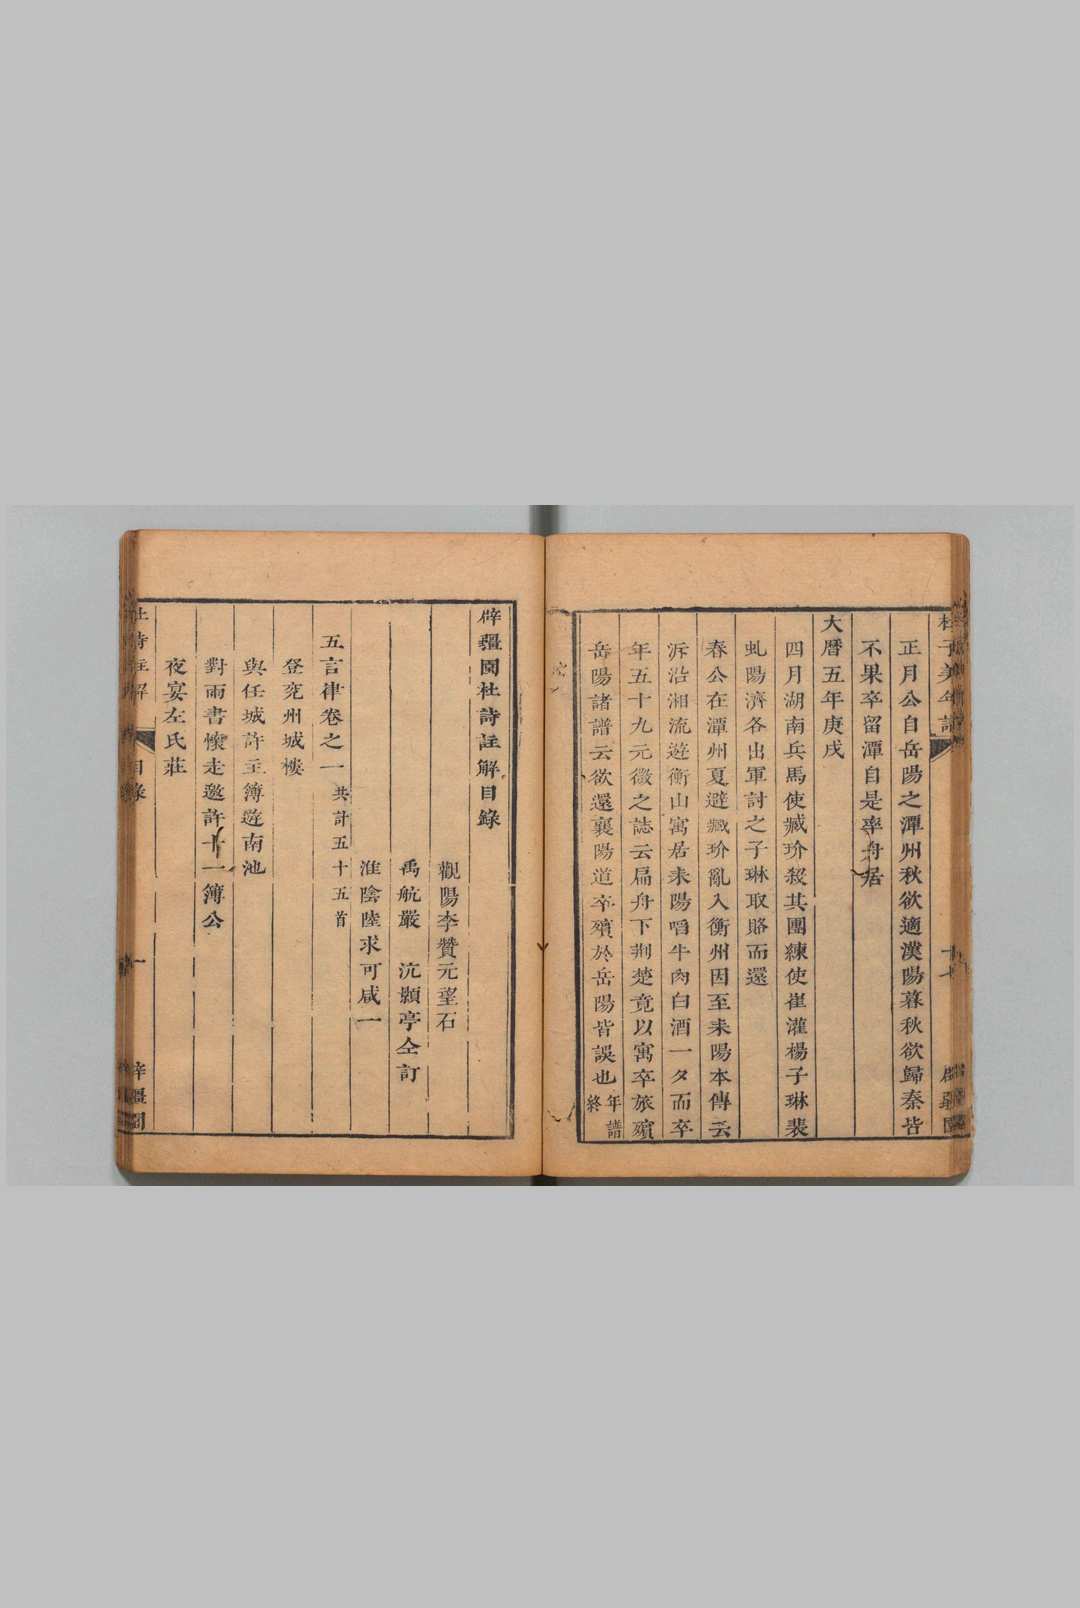 正月公自岳陽之潭州秋欲適漢陽暮秋欲歸秦皆
不果卒留潭自是率舟居
大曆五年庚戌
四月湖南兵馬使臧玠殺其團練使崔灌楊子琳裴
虬陽濟各出軍討之子琳取賂而還
春公在潭州夏避臧玠亂入衡州因至耒陽本傳云
泝沿湘流遊衡山寓居耒陽啗牛肉白酒一夕而卒
年五十九元微之誌云扁舟下荆楚竟以寓卒旅殯
岳陽諸譜云欲還襄陽道卒殯於岳陽皆誤也
年譜
終
辟疆園杜詩註解目錄
觀陽李贊元望石
禹航嚴　沆顥亭仝訂
淮陰陸求可咸一
五言律卷之一 共計五十五首
登兖州城樓
與任城許主簿遊南池
對雨書懷走邀許十一簿公
夜宴左氏莊
杜詩註解
目錄
一
辟疆園